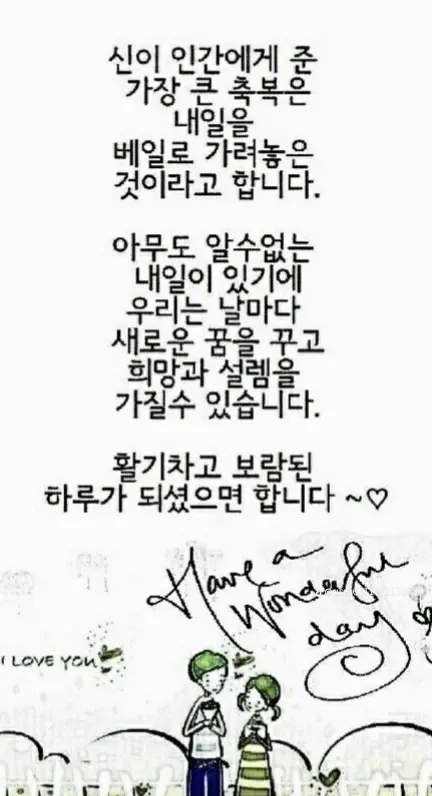 신이 인간에게 준
가장 큰 축복은
내일을
베일로 가려놓은
것이라고 합니다.
아무도 알수없는
내일이 있기에
우리는 날마다
새로운 꿈을 꾸고
희망과 설렘을
가질수 있습니다.
활기차고 보람된
하루가 되셨으면 합니다 ~♡
Have a
Wonderful
day
I LOVE YOU